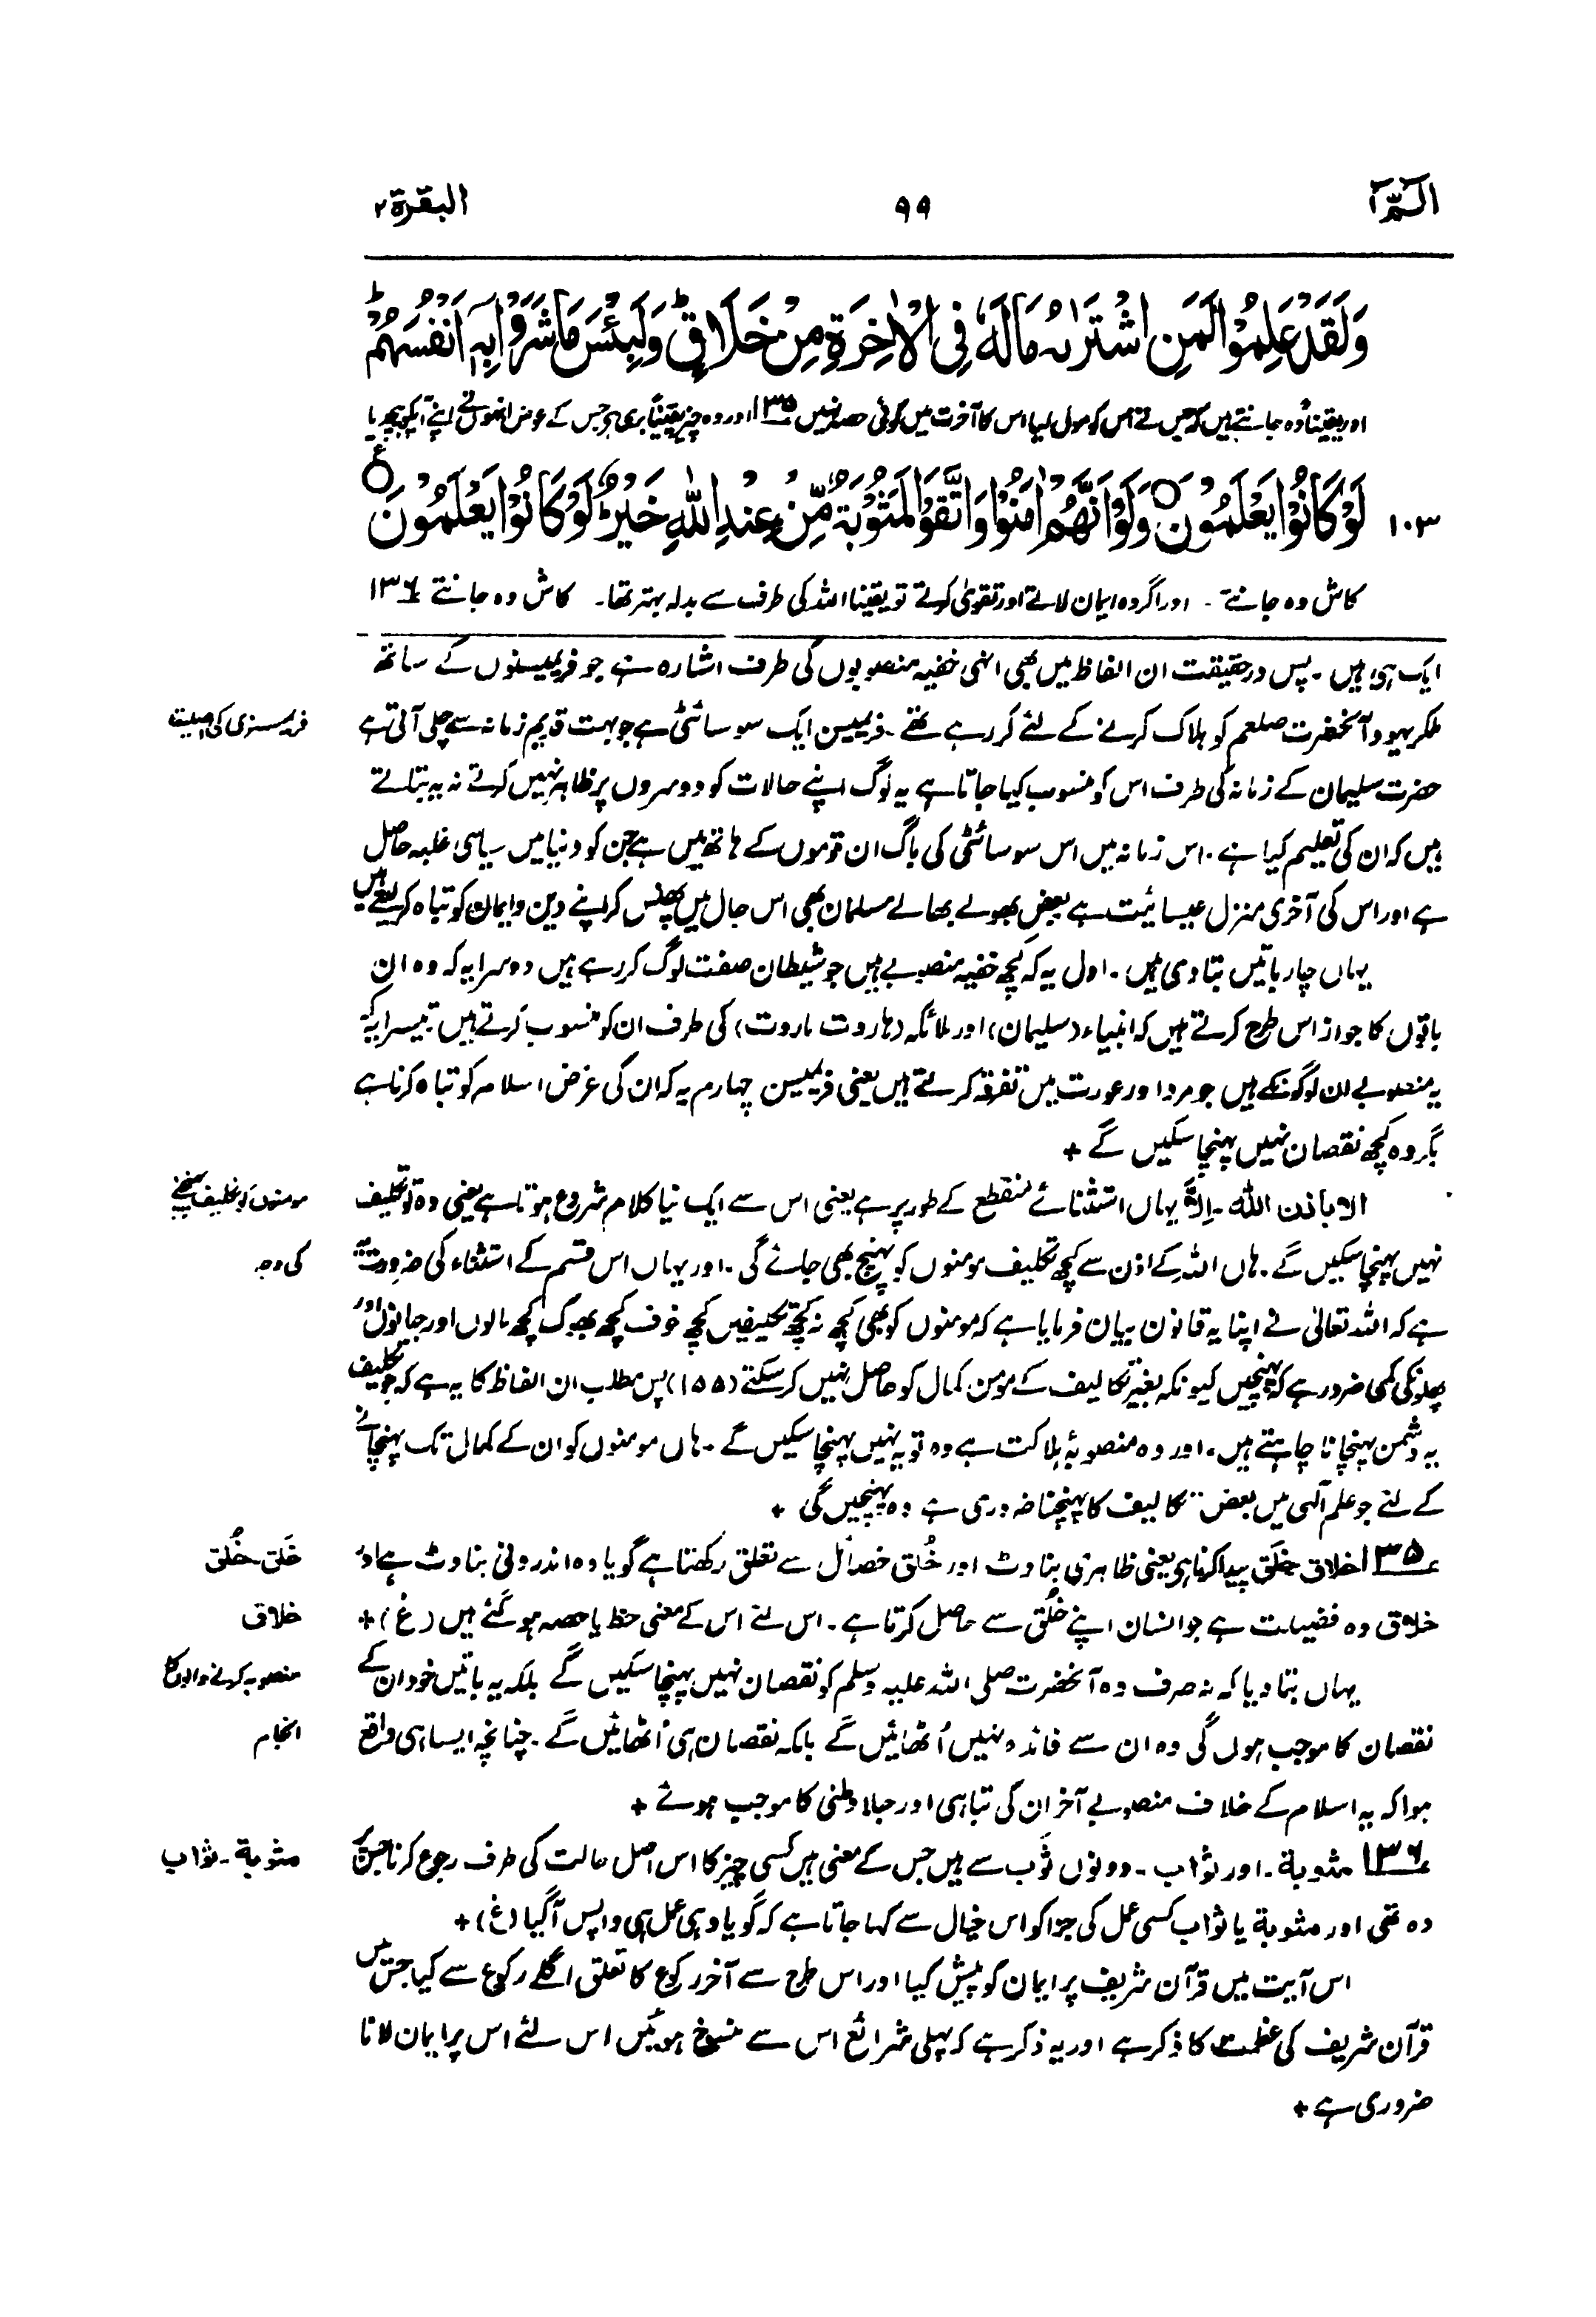 الٓمّٓ ١
٩٩
البقرة ٢
وَلَقَدْ عَلِمُوْا لَمَنِ اشْتَرٰىهُ مَا لَهٗ فِى الْاٰخِرَةِ مِنْ خَلَاقٍ ؕ وَلَبِئْسَ مَا شَرَوْا بِهٖۤ اَنْفُسَهُمْ ؕ
اور یقیناً وہ جانتے ہیں کہ جس نے اس کو مول لیا اس کا آخرت میں کوئی حصہ نہیں ۱۳۵ اور وہ چیز یقیناً بری ہے جس کے عوض انہوں نے اپنے آپکو بیچدیا
١٠٣ لَوْ كَانُوْا يَعْلَمُوْنَ ○ وَلَوْ اَنَّهُمْ اٰمَنُوْا وَاتَّقَوْا لَمَثُوْبَةٌ مِّنْ عِنْدِ اللّٰهِ خَيْرٌ ؕ لَوْ كَانُوْا يَعْلَمُوْنَ ○ ع
کاش وہ جانتے ۔ اور اگر وہ ایمان لاتے اور تقویٰ کرتے تو یقینا اللہ کی طرف سے بدلہ بہتر تھا ۔ کاش وہ جانتے ۱۳۶
ایک ہی ہیں ۔ پس درحقیقت ان الفاظ میں بھی انہی خفیہ منصوبوں کی طرف اشارہ ہے جو فریمیسنوں کے ساتھ
ملکر یہود آنحضرت صلعم کو ہلاک کرنے کے لئے کر رہے تھے ۔ فریمیسن ایک سوسائٹی ہے جو بہت قدیم زمانہ سے چلی آتی ہے
فریمیسنری کی اصلیت
حضرت سلیمان کے زمانہ کی طرف اس کو منسوب کیا جاتا ہے یہ لوگ اپنے حالات کو دوسروں پر ظاہر نہیں کرتے نہ یہ بتلاتے
ہیں کہ ان کی تعلیم کیا ہے ۔ اس زمانہ میں اس سوسائٹی کی باگ ان قوموں کے ہاتھ میں ہے جن کو دنیا میں سیاسی غلبہ حاصل
ہے اور اس کی آخری منزل عیسائیت ہے بعض بھولے بھالے مسلمان بھی اس جال میں پھنس کر اپنے دین و ایمان کو تباہ کر لیتے ہیں
یہاں چار باتیں بتا دی ہیں ۔ اول یہ کہ کچھ خفیہ منصوبے ہیں جو شیطان صفت لوگ کر رہے ہیں دوسرا یہ کہ وہ ان
باتوں کا جواز اس طرح کرتے ہیں کہ انبیاء (سلیمان) اور ملائکہ (ہاروت ماروت) کی طرف ان کو منسوب کرتے ہیں ۔ تیسرا یہ کہ
یہ منصوبے ان لوگونکے ہیں جو مرد اور عورت میں تفرقہ کرتے ہیں یعنی فریمیسن چہارم یہ کہ ان کی غرض اسلام کو تباہ کرنا ہے
مگر وہ کچھ نقصان نہیں پہنچا سکیں گے +
الا باذن اللہ ۔ اِلَّا یہاں استثنائے منقطع کے طور پر ہے یعنی اس سے ایک نیا کلام شروع ہوتا ہے یعنی وہ تو تکلیف
مومنوں کو تکلیف پہنچنے
نہیں پہنچا سکیں گے ۔ ہاں اللہ کے اذن سے کچھ تکلیف مومنوں کو پہنچ بھی جائے گی ۔ اور یہاں اس قسم کے استثناء کی ضرورت یہ
کی وجہ
ہے کہ اللہ تعالیٰ نے اپنا یہ قانون بیان فرمایا ہے کہ مومنوں کو بھی کچھ نہ کچھ تکلیفیں کچھ خوف کچھ بھوک کچھ مالوں اور جانوں اور
پھلونکی کمی ضرور ہے کہ پہنچیں کیونکہ بغیر تکالیف کے مومن کمال کو حاصل نہیں کر سکتے (۱۵۵) پس مطلب ان الفاظ کا یہ ہے کہ جو تکلیف
یہ دشمن پہنچانا چاہتے ہیں ۔ اور وہ منصوبۂ ہلاکت ہے وہ تو یہ نہیں پہنچا سکیں گے ۔ ہاں مومنوں کو ان کے کمال تک پہنچانے
کے لئے جو علم الٰہی میں بعض تکالیف کا پہنچنا ضروری ہے وہ پہنچیں گی +
۱۳۵ خلاق خَلق پیدا کرنا ہی یعنی ظاہری بناوٹ اور خُلق خصائل سے تعلق رکھتا ہے گویا وہ اندرونی بناوٹ ہے اور
خَلق ۔ خُلق
خلاق وہ فضیلت ہے جو انسان اپنے خُلق سے حاصل کرتا ہے ۔ اس لئے اس کے معنی حظ یا حصہ ہو گئے ہیں (غ) +
خلاق
یہاں بتا دیا کہ نہ صرف وہ آنحضرت صلی اللہ علیہ وسلم کو نقصان نہیں پہنچا سکیں گے بلکہ یہ باتیں خود ان کے
منصوبہ کرنے والوں کا
نقصان کا موجب ہوں گی وہ ان سے فائدہ نہیں اُٹھائیں گے بلکہ نقصان ہی اُٹھائیں گے ۔ چنانچہ ایسا ہی واقع
انجام
ہوا کہ یہ اسلام کے خلاف منصوبے آخر ان کی تباہی اور جلا وطنی کا موجب ہوئے +
۱۳۶ مثوبة ۔ اور ثواب ۔ دونوں ثَوب سے ہیں جس کے معنی ہیں کسی چیز کا اس اصل حالت کی طرف رجوع کرنا جس پر
مثوبة ۔ ثواب
وہ تھی اور مثوبة یا ثواب کسی عمل کی جزا کو اس خیال سے کہا جاتا ہے کہ گویا وہی عمل ہی واپس آ گیا (غ) +
اس آیت میں قرآن شریف پر ایمان کو پیش کیا اور اس طرح سے آخر رکوع کا تعلق اگلے رکوع سے کیا جس میں
قرآن شریف کی عظمت کا ذکر ہے اور یہ ذکر ہے کہ پہلی شرائع اس سے منسوخ ہوئیں اس لئے اس پر ایمان لانا
ضروری ہے +